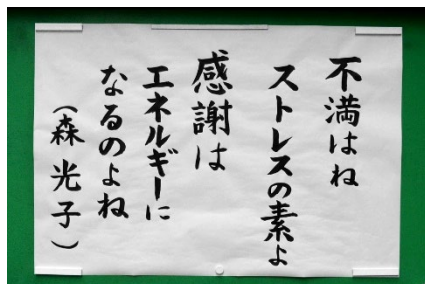 不満はね
ストレスの素よ
感謝は
エネルギーに
なるのよね
(森 光子)